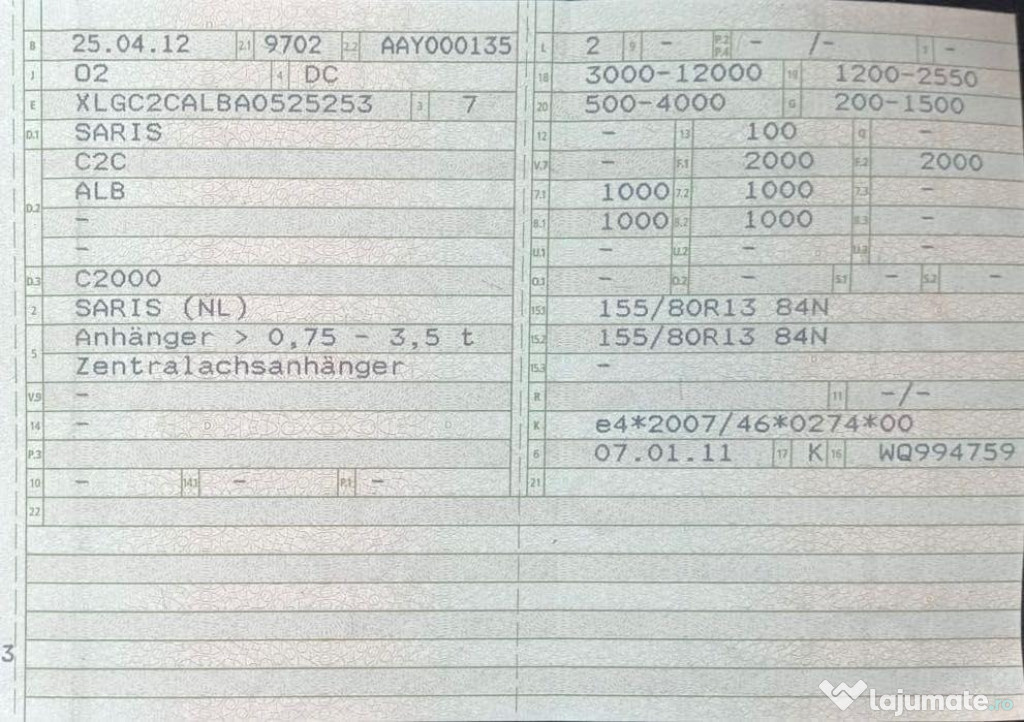 B 25.04.12 2.1 9702 2.2 AAY000135 L 2 9 - P.2 P.4 - /- T -
J O2 4 DC 18 3000-12000 19 1200-2550
E XLGC2CALBA0525253 3 7 20 500-4000 G 200-1500
D.1 SARIS 12 - 13 100 Q -
C2C V.7 - F.1 2000 F.2 2000
D.2 ALB 7.1 1000 7.2 1000 7.3 -
- 8.1 1000 8.2 1000 8.3 -
- U.1 - U.2 - U.3 -
D.3 C2000 O.1 - O.2 - S.1 - S.2 -
2 SARIS (NL) 15.1 155/80R13 84N
5 Anhänger > 0,75 - 3,5 t 15.2 155/80R13 84N
Zentralachsanhänger 15.3 -
V.9 - R 11 -/-
14 - K e4*2007/46*0274*00
P.3 6 07.01.11 17 K 16 WQ994759
10 - 14.1 - P.1 - 21
22
3
lajumate.ro